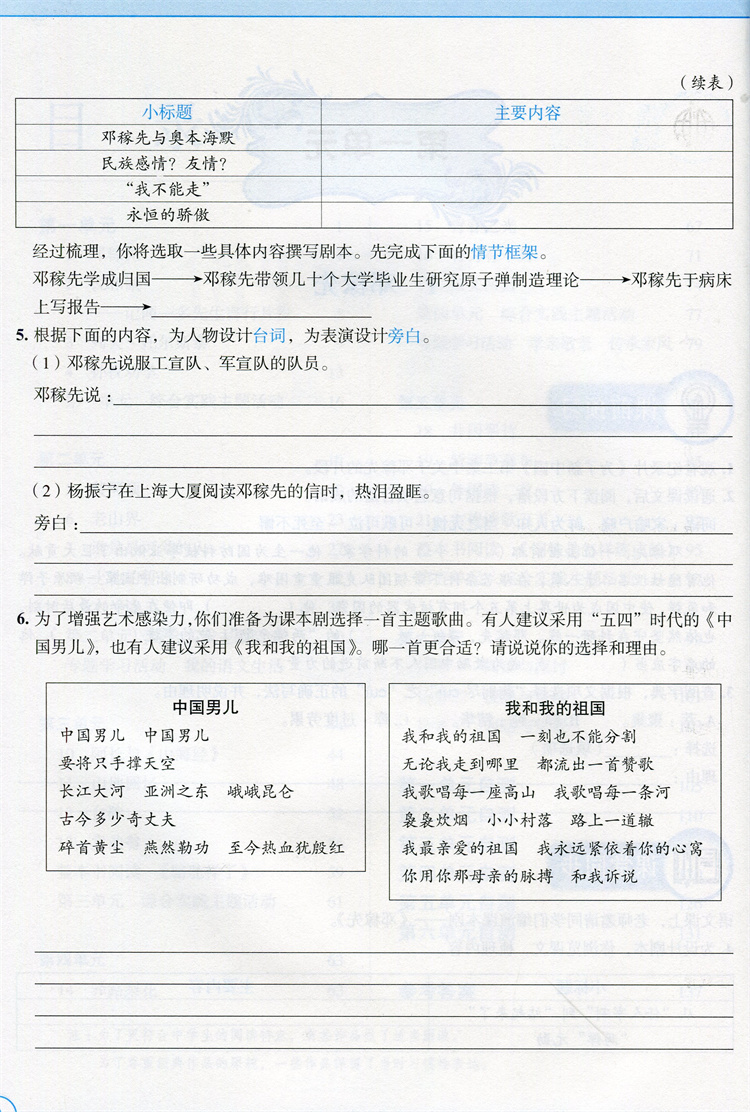 （续表）
小标题 主要内容
邓稼先与奥本海默
民族感情？友情？
“我不能走”
永恒的骄傲
经过梳理，你将选取一些具体内容撰写剧本。先完成下面的情节框架。
邓稼先学成归国→邓稼先带领几十个大学毕业生研究原子弹制造理论→邓稼先于病床
上写报告→
5. 根据下面的内容，为人物设计台词，为表演设计旁白。
（1）邓稼先说服工宣队、军宣队的队员。
邓稼先说：
（2）杨振宁在上海大厦阅读邓稼先的信时，热泪盈眶。
旁白：
6. 为了增强艺术感染力，你们准备为课本剧选择一首主题歌曲。有人建议采用“五四”时代的《中
国男儿》，也有人建议采用《我和我的祖国》。哪一首更合适？请说说你的选择和理由。
中国男儿
中国男儿 中国男儿
要将只手撑天空
长江大河 亚洲之东 峨峨昆仑
古今多少奇丈夫
碎首黄尘 燕然勒功 至今热血犹殷红
我和我的祖国
我和我的祖国 一刻也不能分割
无论我走到哪里 都流出一首赞歌
我歌唱每一座高山 我歌唱每一条河
袅袅炊烟 小小村落 路上一道辙
我最亲爱的祖国 我永远紧依着你的心窝
你用你那母亲的脉搏 和我诉说